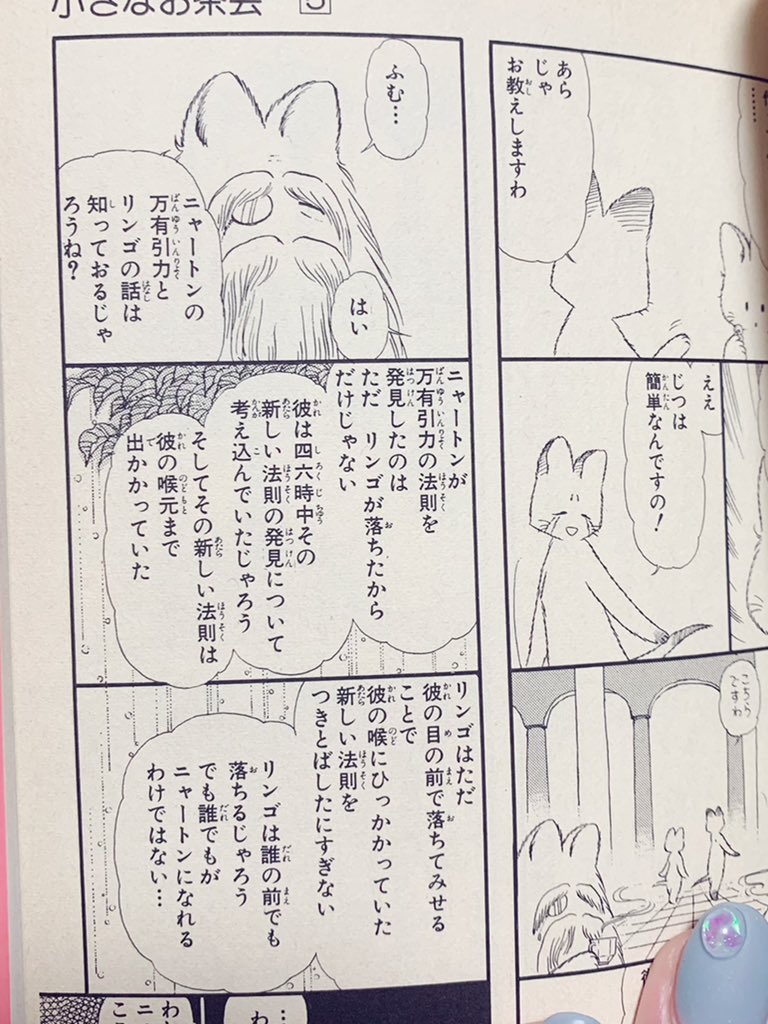 小さなお茶会
あら
じゃ
お教えしますわ
ええ
じつは
簡単なんですの!
こちら
ですわ
ふむ…
ニャートンの
万有引力と
リンゴの話は
知っておるじゃ
ろうね?
はい
ニャートンが
万有引力の法則を
発見したのは
ただ リンゴが落ちたから
だけじゃない
彼は四六時中その
新しい法則の発見について
考え込んでいたじゃろう
そしてその新しい法則は
彼の喉元まで
出かかっていた
リンゴはただ
彼の目の前で落ちてみせる
ことで
彼の喉にひっかかっていた
新しい法則を
つきとばしたにすぎない
リンゴは誰の前でも
落ちるじゃろう
でも誰でもが
ニャートンになれる
わけではない…